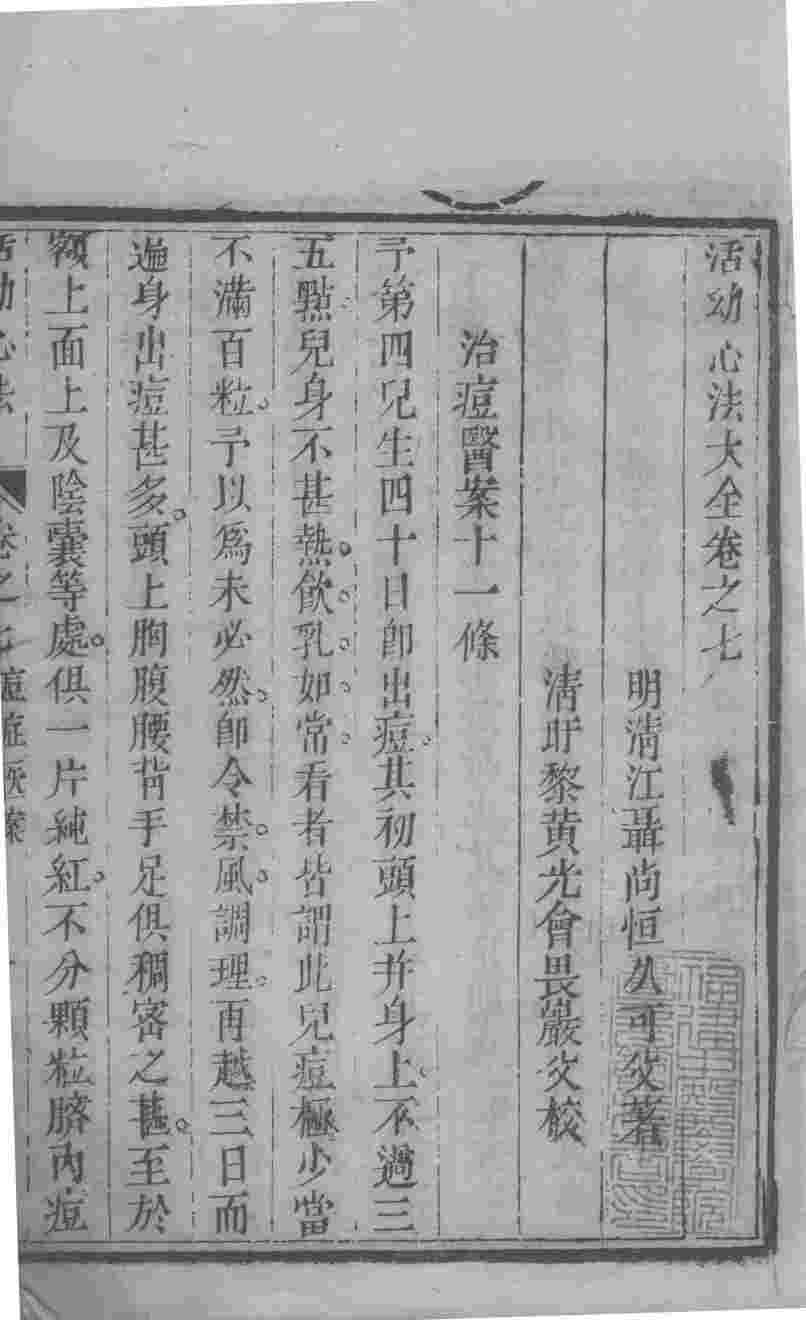 活幼心法大全卷之七
明清江聶尚恒久可父著
清盱黎黄光會畏巖父校
治痘醫案十一條
予第四兒生四十日卽出痘。其初頭上并身上。不過三
五點兒身不甚熱。飮乳。如常。看者皆謂此兒痘極少當
不滿百粒。予以爲未必然。卽令禁。風。調理。再越三日而
遍身出痘甚多。頭上胸腹腰背手足俱稠密之甚。至於
額上面上及陰囊等處。俱一片純紅。不分顆粒臍內痘
活幼心法 卷之七痘症医案